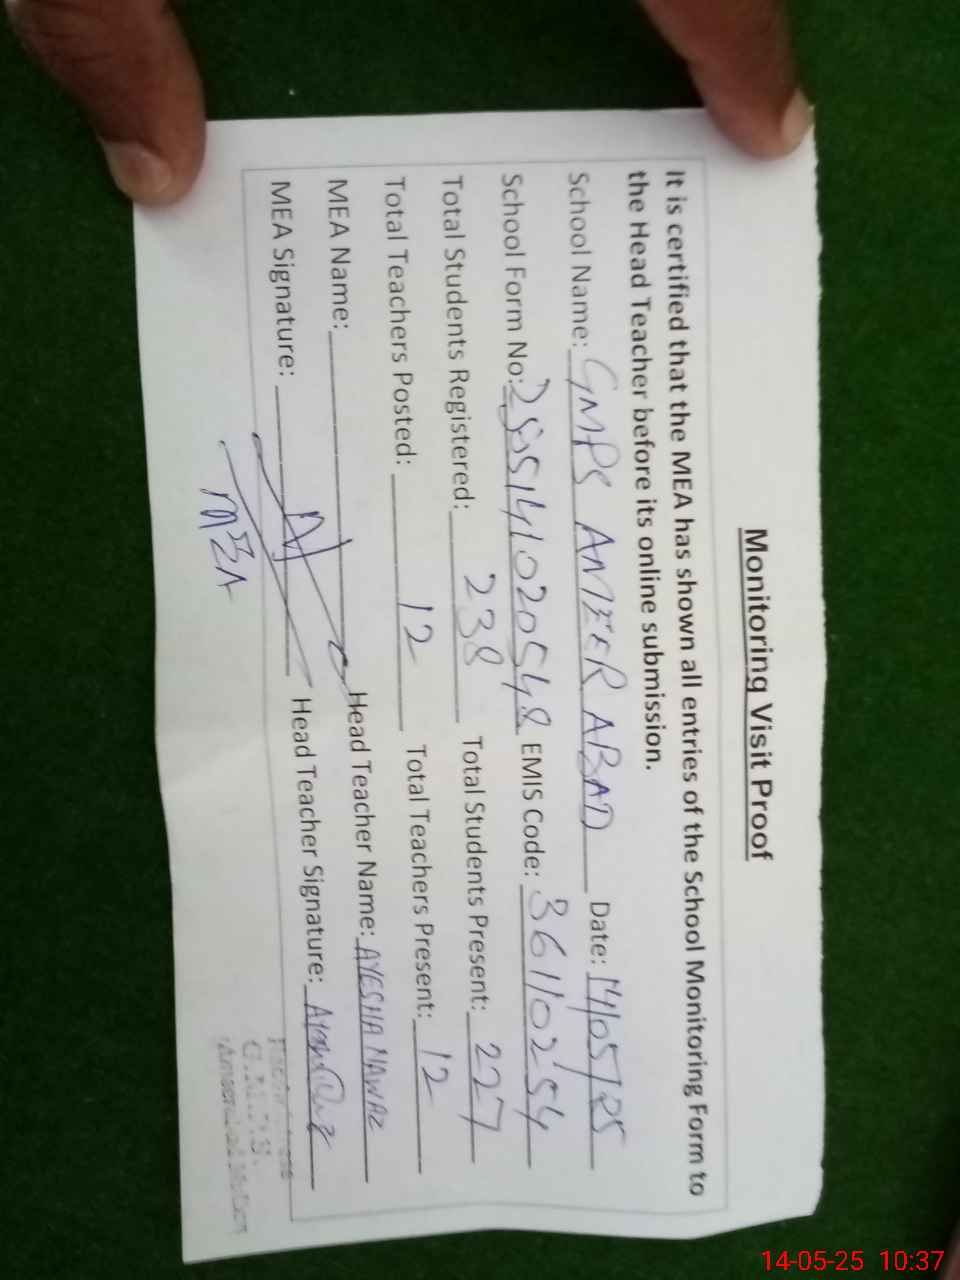 Monitoring Visit Proof
It is certified that the MEA has shown all entries of the School Monitoring Form to
the Head Teacher before its online submission.
School Name: GMPS AMEER ABAD Date: 14/05/25
School Form No: EMIS Code: 36110254
Total Students Registered: 238 Total Students Present: 227
Total Teachers Posted: 12 Total Teachers Present: 12
MEA Name: Head Teacher Name: AYESHA NAWAZ
MEA Signature: Head Teacher Signature:
MEA
14-05-25 10:37